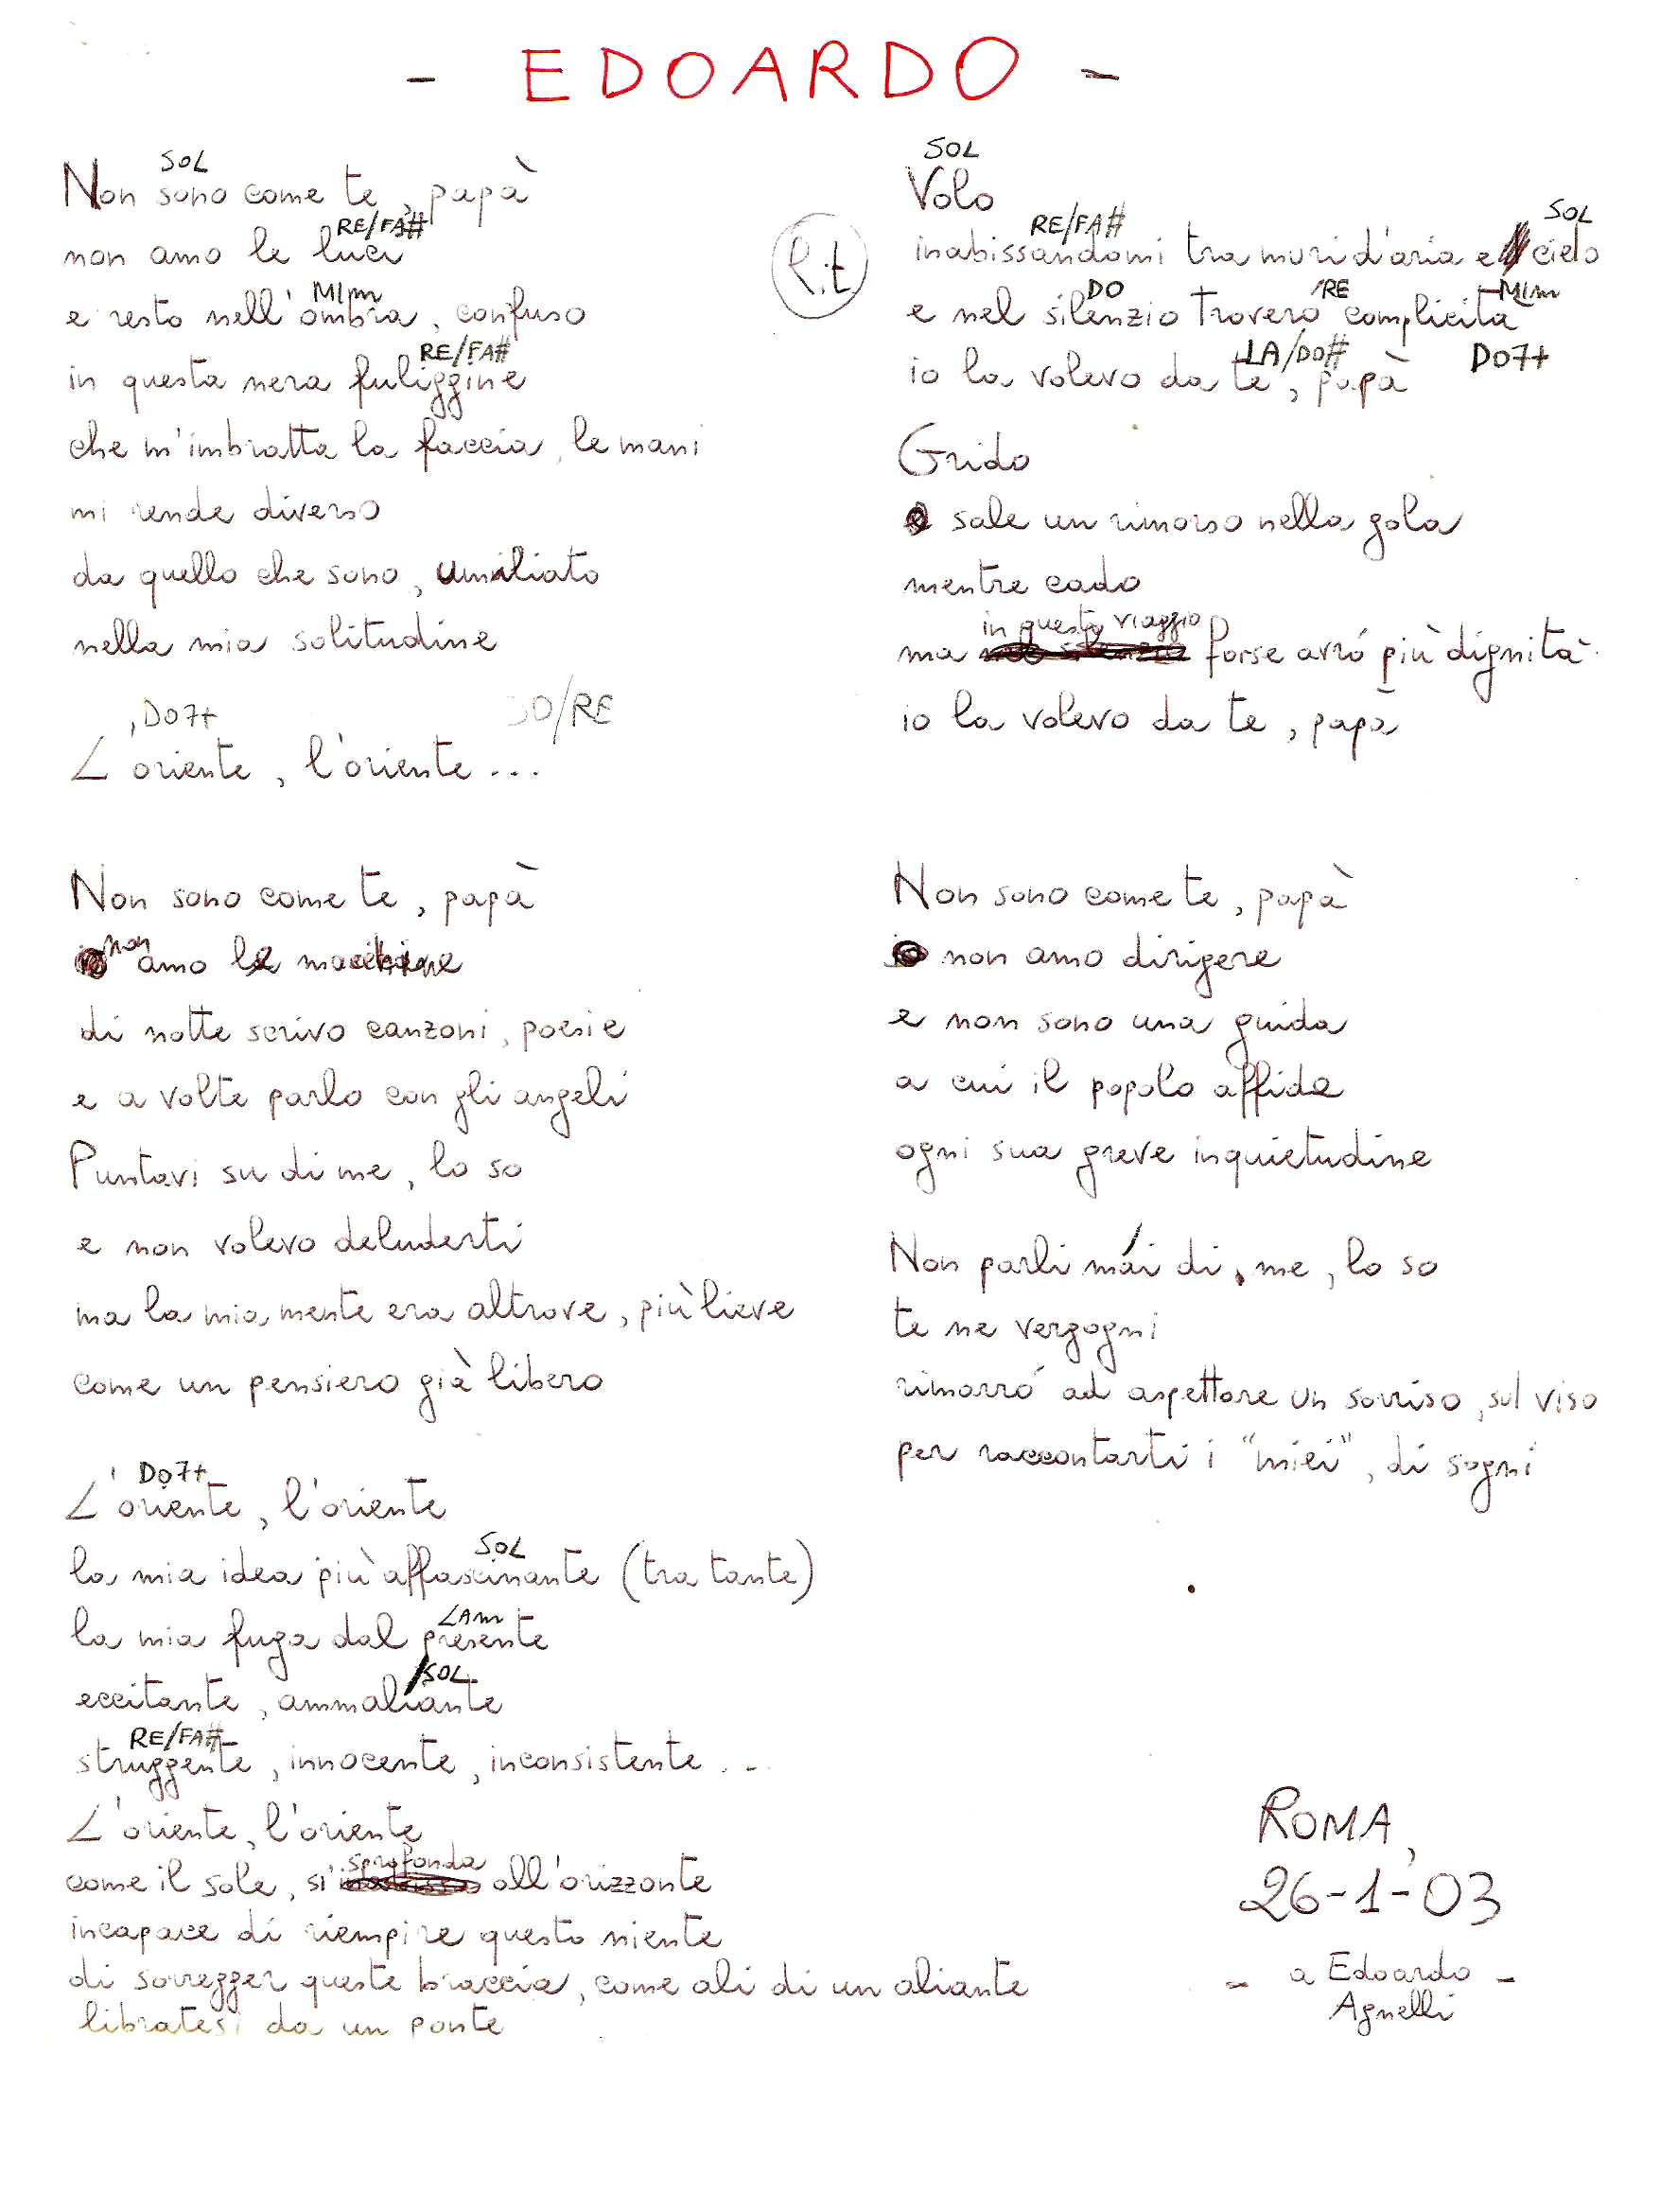 - EDOARDO -
SOL
Non sono come te, papà
RE/FA#
non amo le luci
MIm
e resto nell'ombra, confuso
RE/FA#
in questa nera fuliggine
che m'imbratta la faccia, le mani
mi rende diverso
da quello che sono, umiliato
nella mia solitudine
DO7+ DO/RE
L'oriente, l'oriente...
Non sono come te, papà
non amo le macchine
di notte scrivo canzoni, poesie
e a volte parlo con gli angeli
Puntavi su di me, lo so
e non volevo deluderti
ma la mia mente era altrove, più lieve
come un pensiero già libero
DO7+
L'oriente, l'oriente
SOL
la mia idea più affascinante (tra tante)
LAm
la mia fuga dal presente
/SOL
eccitante, ammaliante
RE/FA#
struggente, innocente, inconsistente...
L'oriente, l'oriente
sprofonda
come il sole, si all'orizzonte
incapace di riempire questo niente
di sorregger queste braccia, come ali di un aliante
libratesi da un ponte
SOL
Volo
Rit
RE/FA# SOL
inabissandomi tra muri d'aria e cielo
DO /RE MIm
e nel silenzio troverò complicità
LA/DO# DO7+
io la volevo da te, papà
Grido
sale un rimorso nella gola
mentre cado
in questo viaggio
ma forse avrò più dignità
io la volevo da te, papà
Non sono come te, papà
non amo dirigere
e non sono una guida
a cui il popolo affida
ogni sua greve inquietudine
Non parli mai di me, lo so
te ne vergogni
rimarrò ad aspettare un sorriso, sul viso
per raccontarti i "miei", di sogni
ROMA,
26-1-03
- a Edoardo -
Agnelli